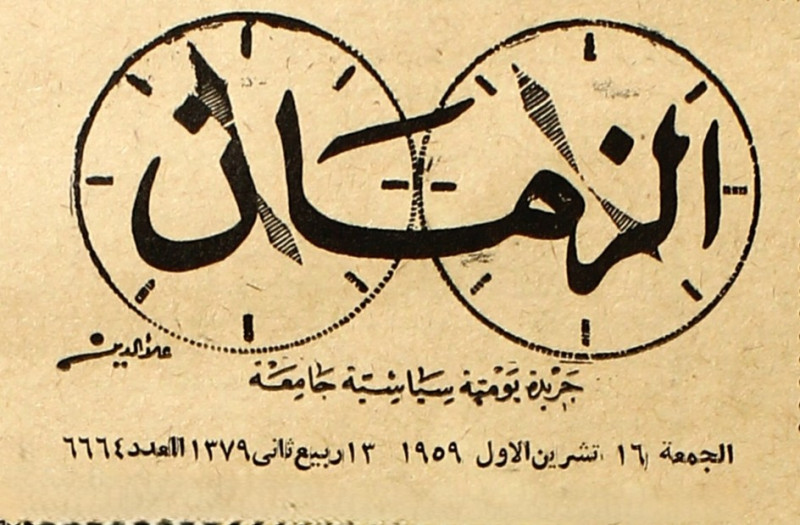 الزمان
علاءالدين
جريدة يومية سياسية جامعة
الجمعة ١٦ تشرين الاول ١٩٥٩ ١٣ ربيع ثانى ١٣٧٩ العدد ٦٦٦٤